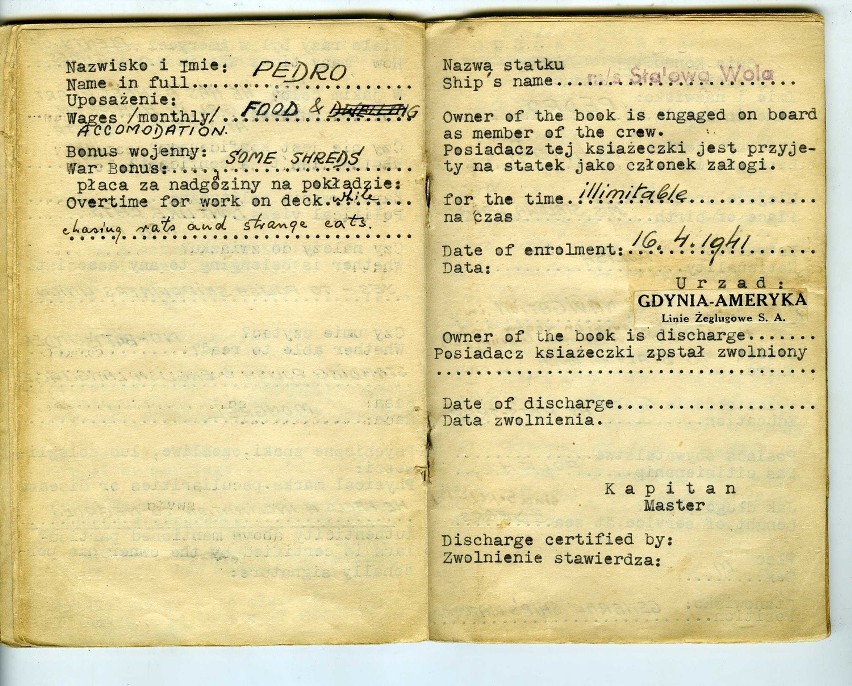 Nazwisko i Imie:
Name in full.. PEDRO
Uposażenie:
Wages /monthly/ FOOD & DWELLING
ACCOMODATION.
Bonus wojenny:
War Bonus: SOME SHREDS
płaca za nadgoziny na pokładzie:
Overtime for work on deck. while
chasing rats and strange cats.
Nazwa statku
Ship's name.... m/s Stalowa Wola
Owner of the book is engaged on board
as member of the crew.
Posiadacz tej ksiażeczki jest przyje-
ty na statek jako członek załogi.
for the time. illimitable
na czas
Date of enrolment: 16. 4. 1941
Data:
Urzad:
GDYNIA-AMERYKA
Linie Żeglugowe S. A.
Owner of the book is discharge.......
Posiadacz ksiażeczki zpstał zwolniony
Date of discharge....................
Data zwolnienia.
Kapitan
Master
Discharge certified by:
Zwolnienie stawierdza: